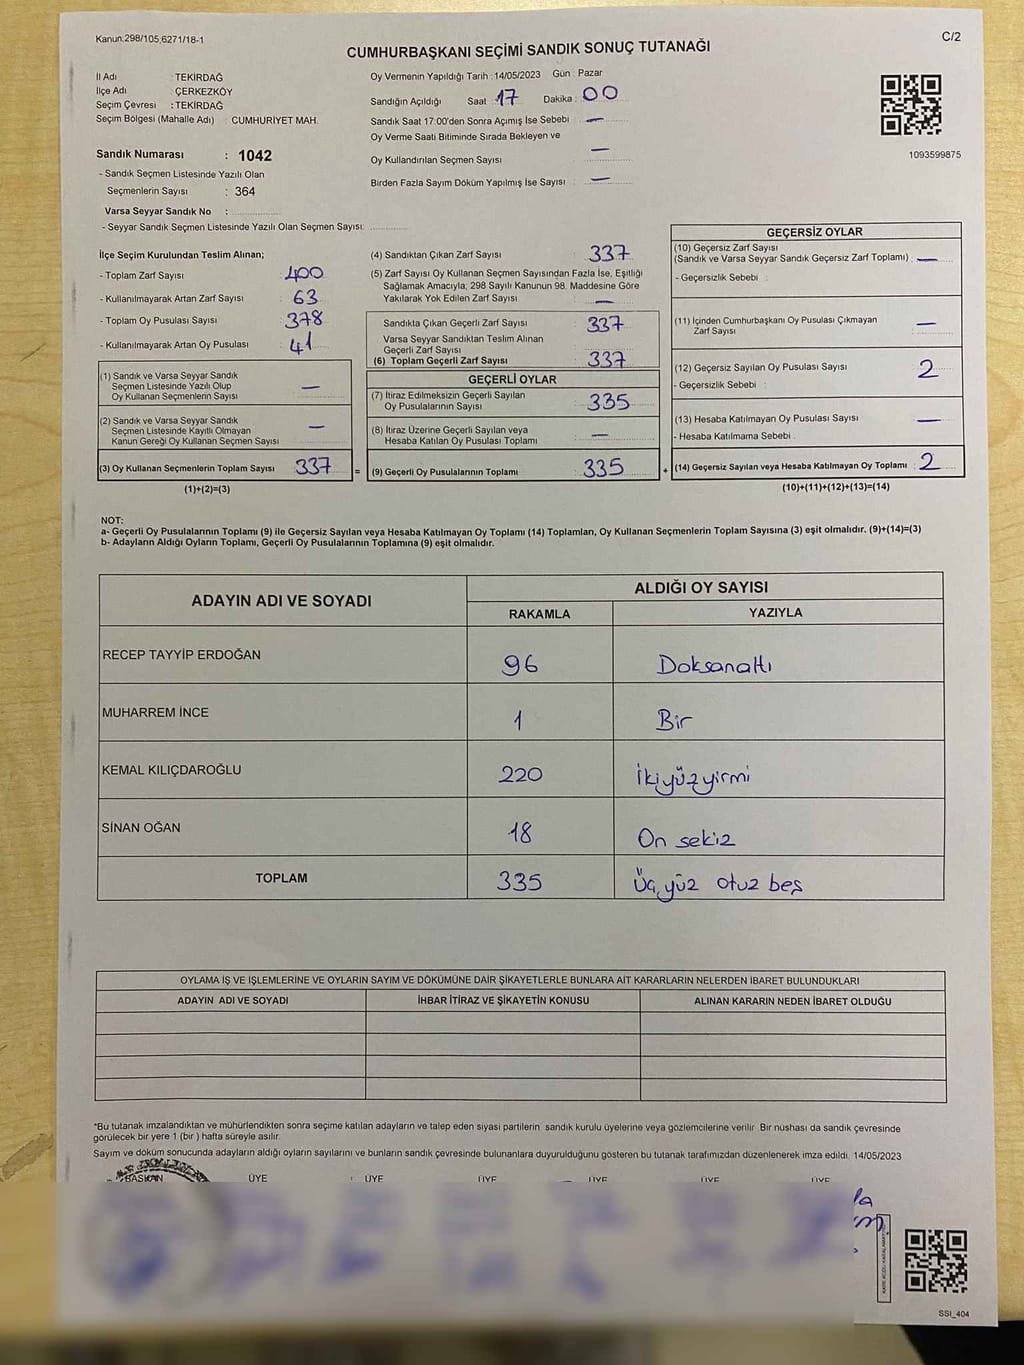 Kanun:298/105,6271/18-1
C/2
CUMHURBAŞKANI SEÇİMİ SANDIK SONUÇ TUTANAĞI
İl Adı : TEKİRDAĞ
İlçe Adı : ÇERKEZKÖY
Seçim Çevresi : TEKİRDAĞ
Seçim Bölgesi (Mahalle Adı) : CUMHURİYET MAH.
Sandık Numarası : 1042
- Sandık Seçmen Listesinde Yazılı Olan
Seçmenlerin Sayısı : 364
Varsa Seyyar Sandık No :
- Seyyar Sandık Seçmen Listesinde Yazılı Olan Seçmen Sayısı:
Oy Vermenin Yapıldığı Tarih : 14/05/2023 Gün : Pazar
Sandığın Açıldığı Saat : 17 Dakika : 00
Sandık Saat 17:00'den Sonra Açımış İse Sebebi : —
Oy Verme Saati Bitiminde Sırada Bekleyen ve
Oy Kullandırılan Seçmen Sayısı : —
Birden Fazla Sayım Döküm Yapılmış İse Sayısı : —
1093599875
İlçe Seçim Kurulundan Teslim Alınan;
- Toplam Zarf Sayısı : 400
- Kullanılmayarak Artan Zarf Sayısı : 63
- Toplam Oy Pusulası Sayısı : 378
- Kullanılmayarak Artan Oy Pusulası : 41
(1) Sandık ve Varsa Seyyar Sandık
Seçmen Listesinde Yazılı Olup
Oy Kullanan Seçmenlerin Sayısı : —
(2) Sandık ve Varsa Seyyar Sandık
Seçmen Listesinde Kayıtlı Olmayan
Kanun Gereği Oy Kullanan Seçmen Sayısı : —
(3) Oy Kullanan Seçmenlerin Toplam Sayısı : 337
(1)+(2)=(3)
=
(4) Sandıktan Çıkan Zarf Sayısı : 337
(5) Zarf Sayısı Oy Kullanan Seçmen Sayısından Fazla İse, Eşitliği
Sağlamak Amacıyla; 298 Sayılı Kanunun 98. Maddesine Göre
Yakılarak Yok Edilen Zarf Sayısı : —
Sandıkta Çıkan Geçerli Zarf Sayısı : 337
Varsa Seyyar Sandıktan Teslim Alınan
Geçerli Zarf Sayısı
(6) Toplam Geçerli Zarf Sayısı : 337
GEÇERLİ OYLAR
(7) İtiraz Edilmeksizin Geçerli Sayılan
Oy Pusulalarının Sayısı : 335
(8) İtiraz Üzerine Geçerli Sayılan veya
Hesaba Katılan Oy Pusulası Toplamı : —
(9) Geçerli Oy Pusulalarının Toplamı : 335
+
GEÇERSİZ OYLAR
(10) Geçersiz Zarf Sayısı
(Sandık ve Varsa Seyyar Sandık Geçersiz Zarf Toplamı) : —
- Geçersizlik Sebebi :
(11) İçinden Cumhurbaşkanı Oy Pusulası Çıkmayan
Zarf Sayısı : —
(12) Geçersiz Sayılan Oy Pusulası Sayısı : 2
- Geçersizlik Sebebi :
(13) Hesaba Katılmayan Oy Pusulası Sayısı : —
- Hesaba Katılmama Sebebi :
(14) Geçersiz Sayılan veya Hesaba Katılmayan Oy Toplamı : 2
(10)+(11)+(12)+(13)=(14)
NOT:
a- Geçerli Oy Pusulalarının Toplamı (9) ile Geçersiz Sayılan veya Hesaba Katılmayan Oy Toplamı (14) Toplamları, Oy Kullanan Seçmenlerin Toplam Sayısına (3) eşit olmalıdır. (9)+(14)=(3)
b- Adayların Aldığı Oyların Toplamı, Geçerli Oy Pusulalarının Toplamına (9) eşit olmalıdır.
ADAYIN ADI VE SOYADI ALDIĞI OY SAYISI
RAKAMLA YAZIYLA
RECEP TAYYİP ERDOĞAN 96 Doksanaltı
MUHARREM İNCE 1 Bir
KEMAL KILIÇDAROĞLU 220 İkiyüzyirmi
SİNAN OĞAN 18 On sekiz
TOPLAM 335 Üç yüz otuz beş
OYLAMA İŞ VE İŞLEMLERİNE VE OYLARIN SAYIM VE DÖKÜMÜNE DAİR ŞİKAYETLERLE BUNLARA AİT KARARLARIN NELERDEN İBARET BULUNDUKLARI
ADAYIN ADI VE SOYADI İHBAR İTİRAZ VE ŞİKAYETİN KONUSU ALINAN KARARIN NEDEN İBARET OLDUĞU
*Bu tutanak imzalandıktan ve mühürlendikten sonra seçime katılan adayların ve talep eden siyasi partilerin sandık kurulu üyelerine veya gözlemcilerine verilir. Bir nushası da sandık çevresinde
görülecek bir yere 1 (bir ) hafta süreyle asılır.
Sayım ve döküm sonucunda adayların aldığı oyların sayılarını ve bunların sandık çevresinde bulunanlara duyurulduğunu gösteren bu tutanak tarafımızdan düzenlenerek imza edildi. 14/05/2023
BAŞKAN ÜYE ÜYE ÜYE ÜYE ÜYE ÜYE
SSI_404